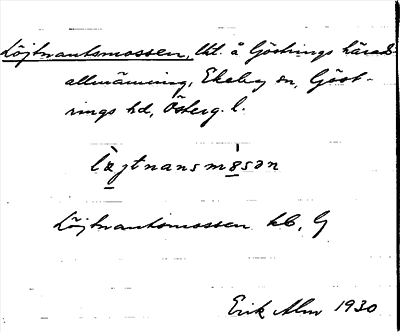 Löjtnantsmossen, lht. å Göstrings härads-
allmänning, Ekeby sn, Göst-
rings hd, Österg. l.
læjtnansmɵsən
Löjtnantsmossen kb, G
Erik Alm 1930